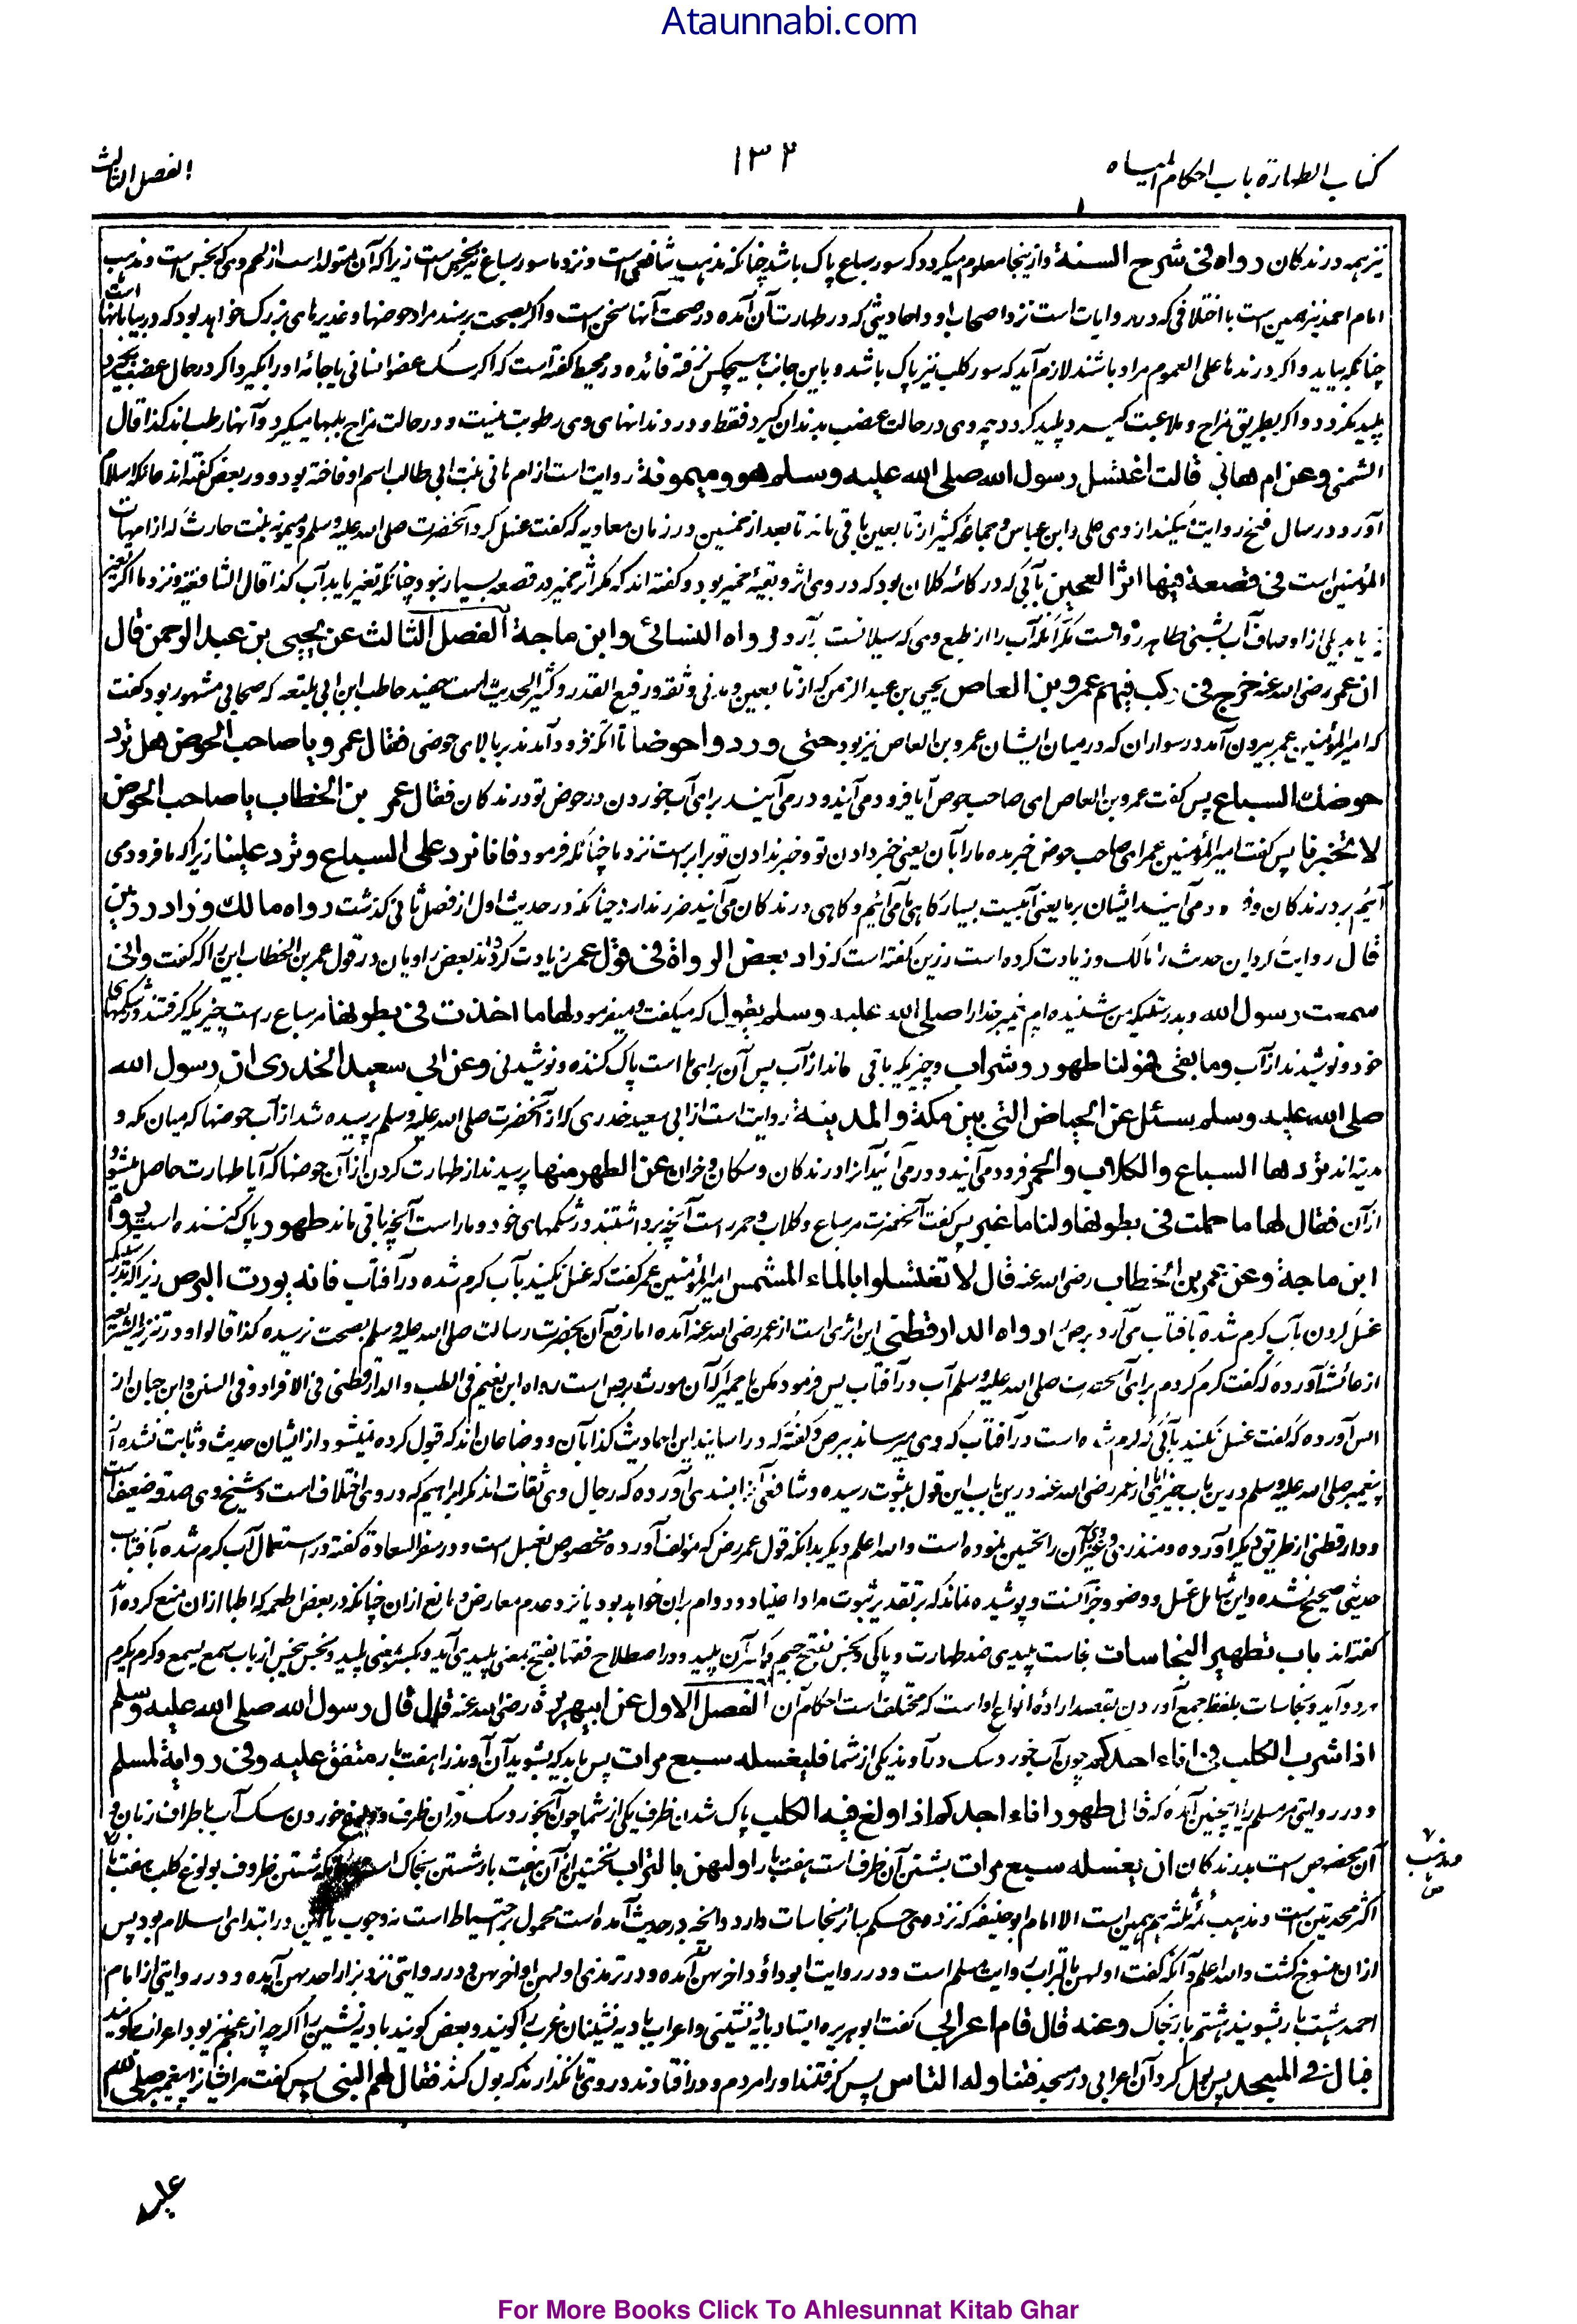 Ataunnabi.com
كتاب الطهارة باب احكام المياه
۱۳۲
الفصل الثالث
نیز همه درندگان رواه فی شرح السنة و ازینجا معلوم میگردد که سور سباع پاک باشد چنانکه مذهب شافعی است و نزد ما سور سباع نیز نجس است زیراکه آن متولد است از لحم وی که نجس است و مذهب
امام احمد نیز همین است با اختلافی که در روایات است نزد اصحاب او و احادیثی که در طهارت آن آمده در صحت آنها سخن است و اگر بصحت برسند مراد حوضها و غدیرهای بزرگ خواهد بود که در بیابانها است
چنانکه بیاید و اگر درندها علی العموم مراد باشند لازم آید که سور کلب نیز پاک باشد و باین جانب هیچکس نرفته فائده در محیط گفته است که اگر سگ عضو انسانی یا جامه او را بگیرد اگر در حال غضب بگیرد
پلید نگردد و اگر بطریق مزاح و ملاعبت گیرد پلید گردد چه وی در حالت غضب بدندان گیرد فقط و در دندانهای وی رطوبت نیست و در حالت مزاح بلبها میگیرد و آنها رطب اند کذا قال
الشمنی وعن ام هانی قالت اغتسل رسول الله صلی الله علیه وسلم هو ومیمونة روایت است از ام هانی بنت ابی طالب اسم او فاخته بود و در بعض گفته اند عاتکه اسلام
آورد در سال فتح روایت میکند از وی علی و ابن عباس و جماعه کثیر از تابعین باقی ماند تا بعد از خمسین در زمان معاویه که گفت غسل کرد آنحضرت صلی الله علیه وسلم و میمونه بنت حارث که از امهات
المؤمنین است فی قصعة فیها اثر العجین بآبی که در کاسه کلان بود که در وی اثر و بقیه خمیر بود و گفته اند که مگر اثر خمیر در قصعه بسیار نبود چنانکه تغیر یابد آب کذا قال الشافعیة و نزد ما اگر تغیر
یابد یکی از اوصاف آب بشیئی طاهر رواست مگر آنکه آب را از طبع وی که سیلانست برآرد رواه النسائی وابن ماجة الفصل الثالث عن یحیی بن عبد الرحمن قال
ان عمر رضی الله عنه خرج فی رکب فیهم عمرو بن العاص یحیی بن عبد الرحمن که از تابعین و مدنی و ثقه و رفیع القدر و کثیر الحدیث است حفید حاطب ابن ابی بلتعه که صحابی مشهور بود گفت
که امیر المؤمنین عمر بیرون آمد در سواران که در میان ایشان عمرو بن العاص نیز بود حتی وردوا حوضا تا آنکه فرود آمدند بر بالای حوضی فقال عمرو یا صاحب الحوض هل ترد
حوضك السباع پس گفت عمرو بن العاص ای صاحب حوض آیا فرود می آیند و درمی آیند برای آب خوردن در حوض تو درندگان فقال عمر بن الخطاب یا صاحب الحوض
لا تخبرنا پس گفت امیر المؤمنین عمر ای صاحب حوض خبر مده ما را بآن یعنی خبر دادن تو و خبر ندادن تو برابر است نزد ما چنانکه فرمود فانا نرد علی السباع وترد علینا زیراکه ما فرود می
آئیم بر درندگان و درمی آیند ایشان بر ما یعنی آبیست بسیار گاهی ما می آئیم و گاهی درندگان می آیند ضرر ندارد چنانکه در حدیث اول از فصل ثانی گذشت رواه مالك وزاد رزین
قال روایت کرد این حدیث را مالک و زیادت کرده است رزین گفته است که زاد بعض الرواة فی قول عمر زیادت کردند بعض راویان در قول عمر بن الخطاب این را که گفت وانی
سمعت رسول الله و بدرستیکه من شنیده ام پیغمبر خدا را صلی الله علیه وسلم یقول که میگفت و میفرمود لها ما اخذت فی بطونها مر سباع راست چیزیکه گرفتند در شکمهای
خود و نوشیدند از آب وما بقی فهو لنا طهور وشراب و چیزیکه باقی ماند از آب پس آن برای ما است پاک کننده و نوشیدنی وعن ابی سعید الخدری ان رسول الله
صلی الله علیه وسلم سئل عن الحیاض التی بین مکة والمدینة روایت است از ابی سعید خدری که از آنحضرت صلی الله علیه وسلم پرسیده شد از آب حوضها که میان مکه و
مدینه اند تردها السباع والکلاب والحمر فرود می آیند و درمی آیند آنرا درندگان و سگان و خران عن الطهر منها پرسیدند از طهارت کردن از آن حوضها که آیا طهارت حاصل میشود
از آن فقال لها ما حملت فی بطونها ولنا ما غبر پس گفت آنحضرت مر سباع و کلاب و حمر راست آنچه برداشتند در شکمهای خود و ما راست آنچه باقی ماند طهور پاک کننده است رواه
ابن ماجة وعن عمر بن الخطاب رضی الله عنه قال لا تغتسلوا بالماء المشمس امیر المؤمنین عمر گفت که غسل نکنید بآب گرم شده در آفتاب فانه یورث البرص زیراکه بدرستیکه
غسل کردن بآب گرم شده بآفتاب می آرد برص را رواه الدارقطنی این اثری است از عمر رضی الله عنه آمده اما رفع آن بحضرت رسالت صلی الله علیه وسلم بصحت نرسیده کذا قالوا و در تنزیه الشریعه
از عائشه آورده که گفت گرم کردم برای آنحضرت صلی الله علیه وسلم آب در آفتاب پس فرمود مکن یا حمیرا که آن مورث برص است رواه ابن نعیم فی الطب والدارقطنی فی الافراد و فی السنن و ابن حبان از
انس آورده که گفت غسل نکنید بآبی که گرم شده است در آفتاب که وی میرساند ببرص و گفته که در اسانید این احادیث کذابان و وضاعان اند که قبول کرده نمیشود از ایشان حدیث و ثابت نشده از
پیغمبر صلی الله علیه وسلم درین باب چیزی اما از عمر رضی الله عنه درین باب این قول بثبوت رسیده و شافعی بسندی آورده که رجال وی ثقات اند مگر ابراهیم که در وی اختلاف است و شیخ وی صدقه ضعیف است
و دارقطنی از طریق دیگر آورده و منذری و غیر وی آن را تحسین نموده است والله اعلم و دیگر بدانکه قول عمر رض که مؤلف آورده مخصوص بغسل است و در سفر السعادة گفته در استعمال آب گرم شده بآفتاب
حدیثی صحیح نشده و این شامل غسل و وضو و جز آنست و پوشیده نماند که بر تقدیر ثبوت مراد اعتیاد و دوام بران خواهد بود یا نزد عدم معارض و مانع ازان چنانکه در بعض اطعمه که اطبا ازان منع کرده اند
گفته اند باب تطهیر النجاسات نجاست پلیدی ضد طهارت و پاکی و نجس بفتح جیم و کسر آن پلید و در اصطلاح فقها بفتح بمعنی پلیدی آید و بکسر بمعنی پلید و نجس ینجس از باب سمع یسمع و کرم یکرم
هر دو آید و نجاسات بلفظ جمع آوردن بقصد اراده انواع او است که مختلف است احکام آن الفصل الاول عن ابی هریرة رضی الله عنه قال قال رسول الله صلی الله علیه وسلم
اذا شرب الکلب فی اناء احدکم چون آب خورد سگ در آوند یکی از شما فلیغسله سبع مرات پس باید که بشوید آن آوند را هفت بار متفق علیه وفی روایة لمسلم
و در روایتی مر مسلم را اینچنین آمده که قال طهور اناء احدکم اذا ولغ فیه الکلب پاک شدن ظرف یکی از شما چون آب خورد سگ دران ظرف و ولوغ خوردن سگ آب باطراف زبان و
آن مخصوص است بدرندگان ان یغسله سبع مرات بشستن آن ظرف است هفت بار اولیهن بالتراب نخستین از آن هفت بار شستن بخاک است شستن ظروف بولوغ کلب هفت بار
مذهب
اکثر محدثین است و مذهب ائمه ثلثه هم همین است الا امام ابو حنیفه که نزد وی حکم سائر نجاسات دارد و آنچه در حدیث آمده است محمول بر احتیاط است نه وجوب یا این در ابتدای اسلام بود پس
ازان منسوخ گشت والله اعلم و آنکه گفت اولیهن بالتراب روایت مسلم است و در روایت ابو داؤد اخرهن آمده و در ترمذی اولیهن او اخرهن و در روایتی نزد بزار احدیهن آمده و در روایتی از امام
احمد هشت بار بشویند هشتم بار بخاک وعنه قال قام اعرابی گفت ابو هریره ایستاد بادیه نشینی و اعراب بادیه نشینان عرب را گویند و بعض گویند بادیه نشین را اگرچه از عجم نیز بود اعراب میگویند
فبال فی المسجد پس بول کرد آن اعرابی در مسجد فتناوله الناس پس گرفتند او را مردم و در افتادند در وی تا نگذارند که بول کند فقال لهم النبی پس گفت مر ایشان را پیغمبر صلی الله
علیه
For More Books Click To Ahlesunnat Kitab Ghar